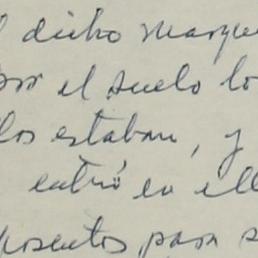 dicho marque
por el suelo lo
los estaban, y
entró en ell
posentos para s